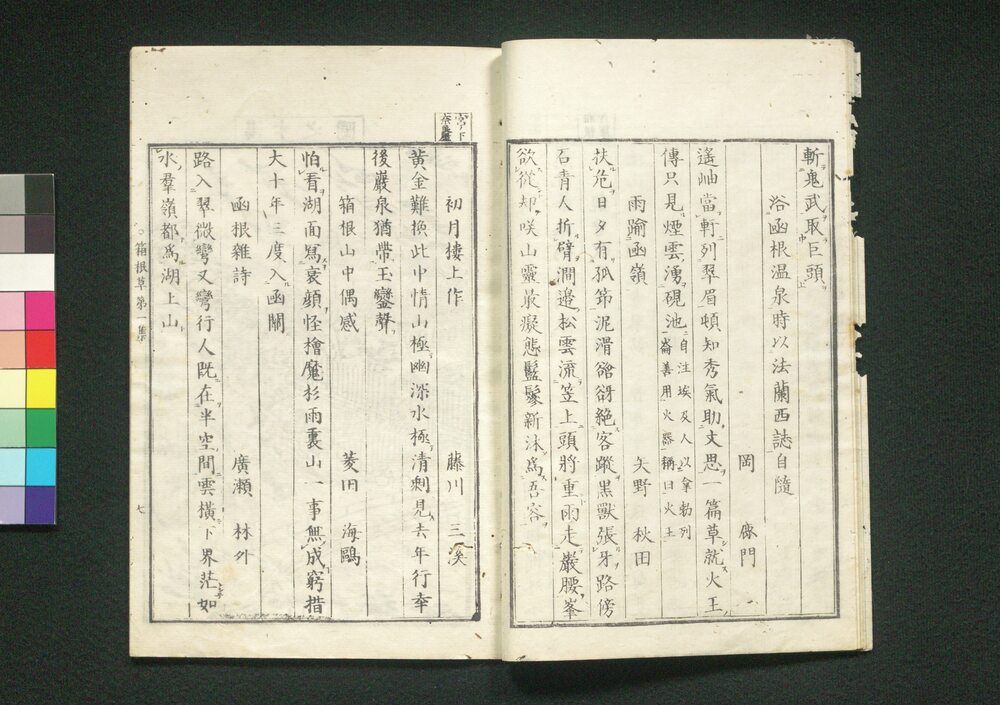 斬鬼武取巨頭
浴函根温泉時以法蘭西誌自隨
岡 鹿門
遙岫當軒列翠眉頓知秀氣助文思一篇草就火王
傳只見煙雲湧硯池
自注埃及人以拿勃列
崙善用火器稱曰火王
雨踰函嶺
矢野 秋田
扶危日夕有孤筇泥滑谽谺絶客蹤黒獸張牙路傍
石青人折臂澗邉松雲流笠上頭將重雨走巖腰峯
欲從却咲山靈最癡態鬖新沐爲吾容
初月樓上作
藤川 三溪
黄金難換此中情山極幽深水極清剩見去年行幸
後巖泉猶帶玉鑾聲
箱根山中偶感
菱田 海鷗
怕看湖面寫衰顔怪檜魔杉雨裏山一事無成窮措
大十年三度入函關
函根雜詩
廣瀬 林外
路入翠微彎又彎行人既在半空間雲横下界茫如
水羣嶺都爲湖上山
箱根草第一集
七